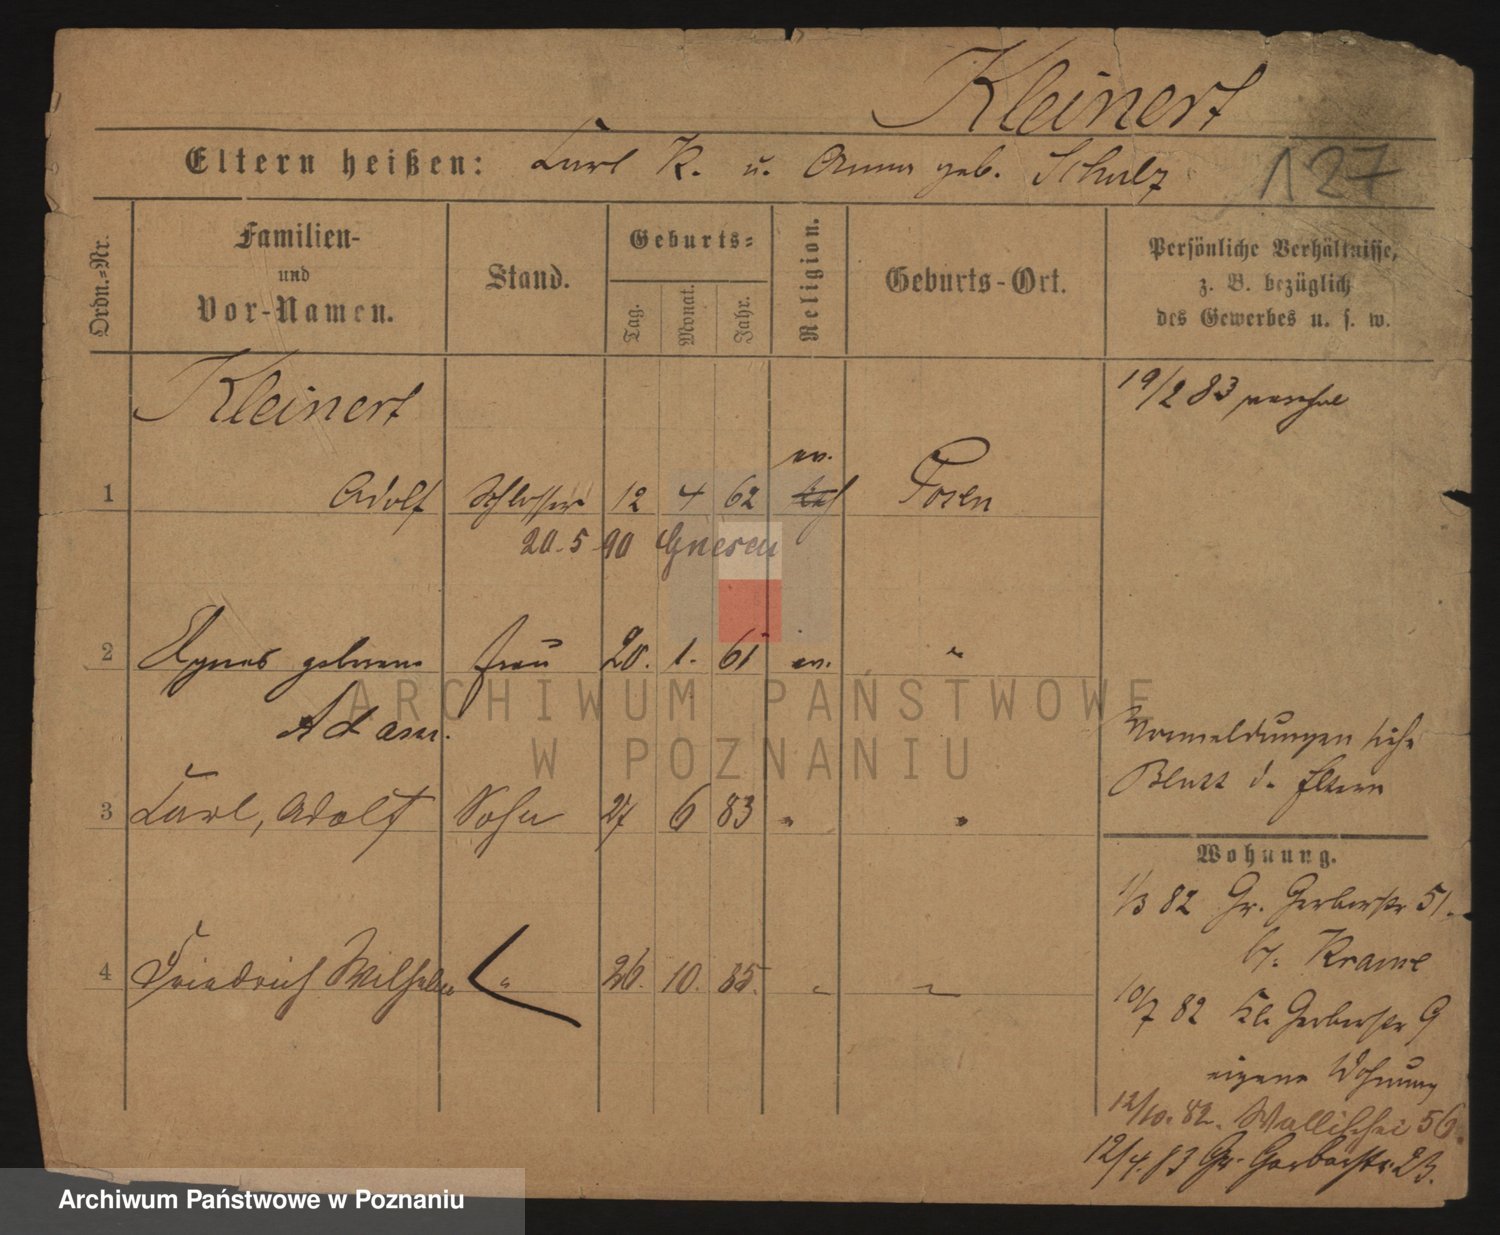 Kleinert
Eltern heißen: Carl K. u. Anna geb. Schulz
127
Ordn.-Nr.
Familien-
und
Vor-Namen.
Stand.
Geburts-
Tag.
Monat.
Jahr.
Religion.
Geburts-Ort.
Persönliche Verhältnisse,
z. B. bezüglich
des Gewerbes u. s. w.
Kleinert
19/2 83
ev.
1 Adolf Schlosser 12 4 62 Posen
20. 5 90 Gnesen
2 Agnes geborene Frau 20. 1. 61 ev. "
Adam.
3 Carl, Adolf Sohn 27 6 83 " "
4 Friedrich Wilhelm " 26. 10. 85. " "
Anmeldungen siehe
Blatt d. Eltern
Wohnung.
1/3 82 Gr. Gerberstr 51.
by. Krame
10/7 82 Kl. Gerberstr 9
eigene Wohnung
12/10. 82. Wallischei 56.
12/4. 83 Gr. Gerberstr. 23.
ARCHIWUM PAŃSTWOWE
W POZNANIU
Archiwum Państwowe w Poznaniu